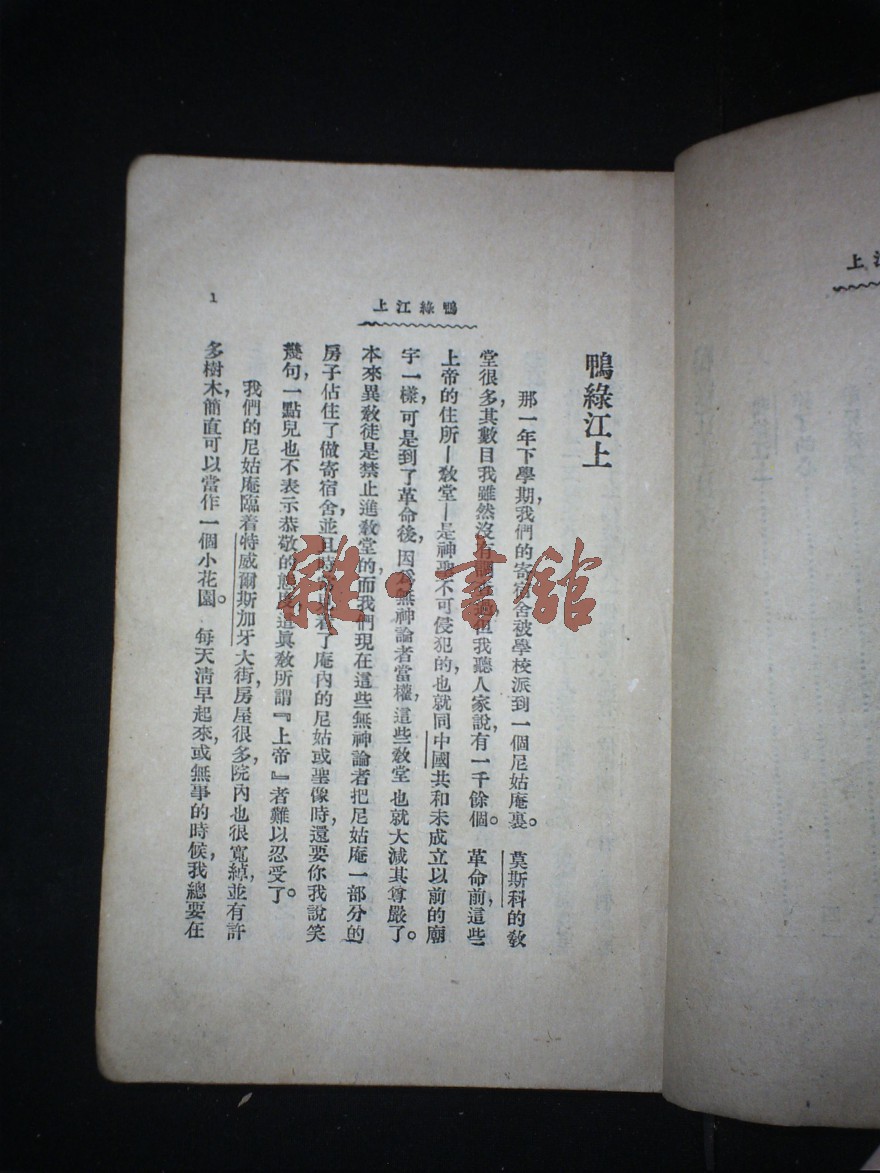 鴨綠江上
1
鴨綠江上
那一年下學期,我們的寄宿舍被學校派到一個尼姑庵裏。莫斯科的敎
堂很多,其數目我雖然沒有調查過,但我聽人家說,有一千餘個。革命前這些
上帝的住所—敎堂—是神聖不可侵犯的,也就同中國共和未成立以前的廟
宇一樣,可是到了革命後,因爲無神論者當權,這些敎堂也就大減其尊嚴了。
本來異敎徒是禁止進敎堂的,而我們現在這些無神論者把尼姑庵一部分的
房子佔住了做寄宿舍,並且時常見着了庵內的尼姑或聖像時,還要你我說笑
幾句,一點兒也不表示恭敬的態度,這眞敎所謂『上帝』者難以忍受了。
我們的尼姑庵臨着特威爾斯加牙大街,房屋很多,院內也很寬綽,並有許
多樹木,簡直可以當作一個小花園。每天淸早起來,或無事的時候,我總要在
雜·書舘
上